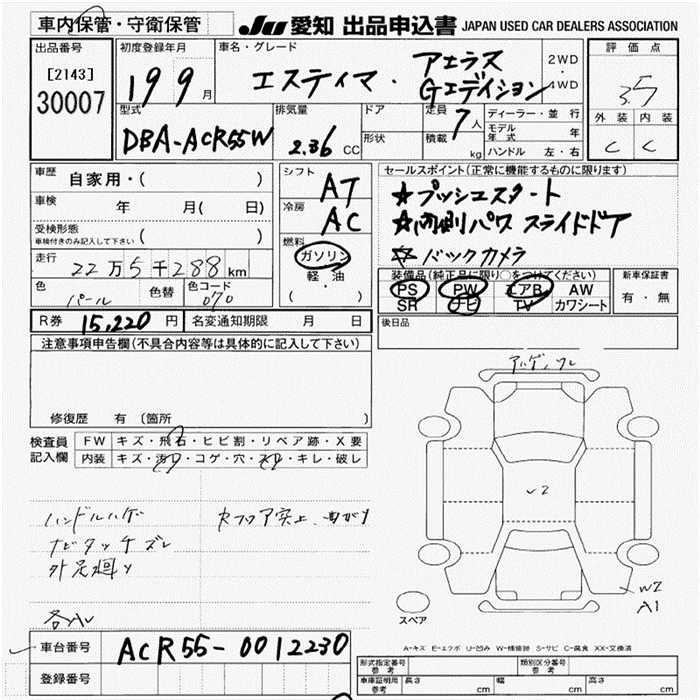 車内保管・守衛保管
JU 愛知 出品申込書 JAPAN USED CAR DEALERS ASSOCIATION
出品番号
[2143]
30007
初度登録年月
19 9月
車名・グレード
エスティマ・ アエラス
Gエディション
2WD
・
4WD
評価点
3.5
外装 内装
C C
型式
DBA-ACR55W
排気量
2.36 CC
ドア
形状
定員
7人
積載 kg
ディーラー・並行
モデル年式 年
ハンドル 左・右
車歴
自家用・( )
車検 年 月( 日)
受検形態
車検付きのみ記入して下さい ( )
走行
22万5千288km
色
パール
色替
色コード
070
シフト
AT
冷房
AC
燃料
ガソリン
軽・油
( )
セールスポイント(正常に機能するものに限ります)
☆プッシュスタート
☆両側パワースライドドア
☆バックカメラ
装備品(純正品に限り○をつけてください)
PS PW エアB AW
SR ナビ TV カワシート
新車保証書
有・無
R券 15,220円
名変通知期限 月 日
後日品
注意事項申告欄(不具合内容等は具体的に記入して下さい)
修復歴 有(箇所
検査員
記入欄
FW キズ・飛石・ヒビ割・リペア跡・X要
内装 キズ・汚レ・コゲ・穴・スレ・キレ・破レ
ハンドルハゲ
ナビタッチズレ
外足廻り
各ハレ
曲がり
√2
W2
A1
スペア
A-キズ E-エクボ U-凹み W-補修跡 S-サビ C-腐食 XX-交換済
車台番号 ACR55-0012230
登録番号
形式指定番号
参考
類別区分番号
参考
車庫証明用
参考
長さ cm 幅 cm 高さ cm